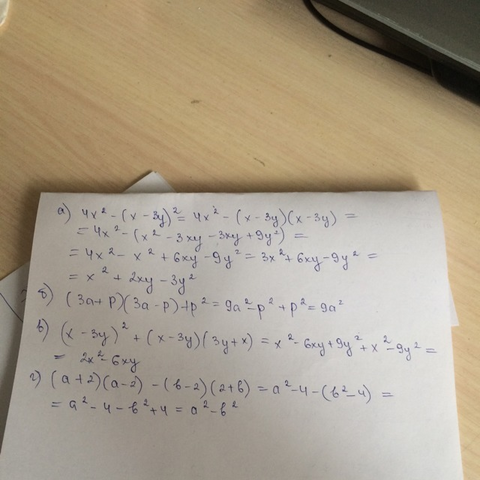 а) 4x² - (x - 3y)² = 4x² - (x - 3y)(x - 3y) =
= 4x² - (x² - 3xy - 3xy + 9y²) =
= 4x² - x² + 6xy - 9y² = 3x² + 6xy - 9y² =
= x² + 2xy - 3y²
б) (3a + p)(3a - p) + p² = 9a² - p² + p² = 9a²
в) (x - 3y)² + (x - 3y)(3y + x) = x² - 6xy + 9y² + x² - 9y² =
= 2x² - 6xy
г) (a + 2)(a - 2) - (b - 2)(2 + b) = a² - 4 - (b² - 4) =
= a² - 4 - b² + 4 = a² - b²